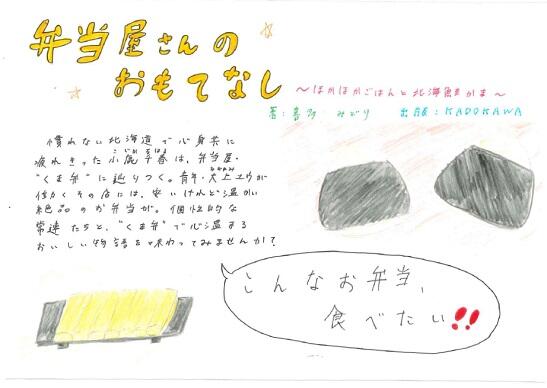 弁当屋さんの
おもてなし
～ほかほかごはんと北海鮭かま～
著:喜多 みどり 出版:KADOKAWA
慣れない北海道で心身共に
疲れきった小鹿千春は、弁当屋・
"くま弁"に辿りつく。青年・大上ユウが
働くその店には、安いけれど温かい
絶品のお弁当が。個性的な
常連たちと、"くま弁"で心温まる
おいしい物語を味わってみませんか?
こんなお弁当、
食べたい!!